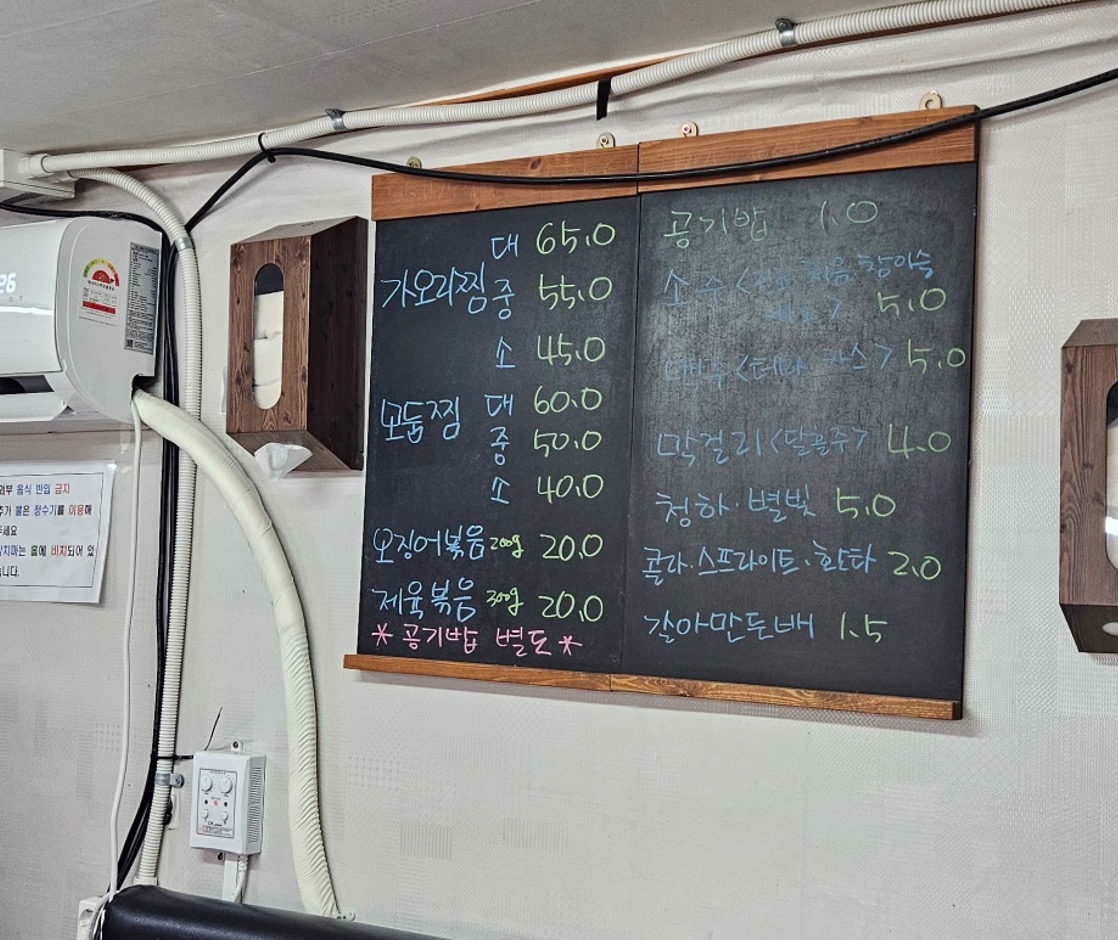 대 65.0
가오리찜 중 55.0
소 45.0
모듬찜 대 60.0
중 50.0
소 40.0
오징어볶음 200g 20.0
제육볶음 300g 20.0
* 공기밥 별도 *
공기밥 1.0
소주 < 처음 참이슬
> 5.0
맥주 <테라 카스> 5.0
막걸리 <달골주> 4.0
청하·별빛 5.0
콜라·스프라이트·환타 2.0
갈아만든배 1.5
26
외부 음식 반입 금지
불은 정수기를 이용해
주세요
앞치마는 홀에 비치되어 있
습니다.